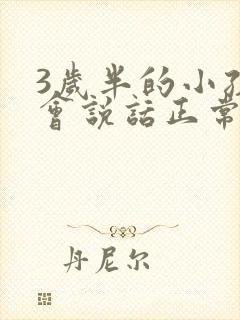 3歲半的小孩
會說話正常
丹尼尔